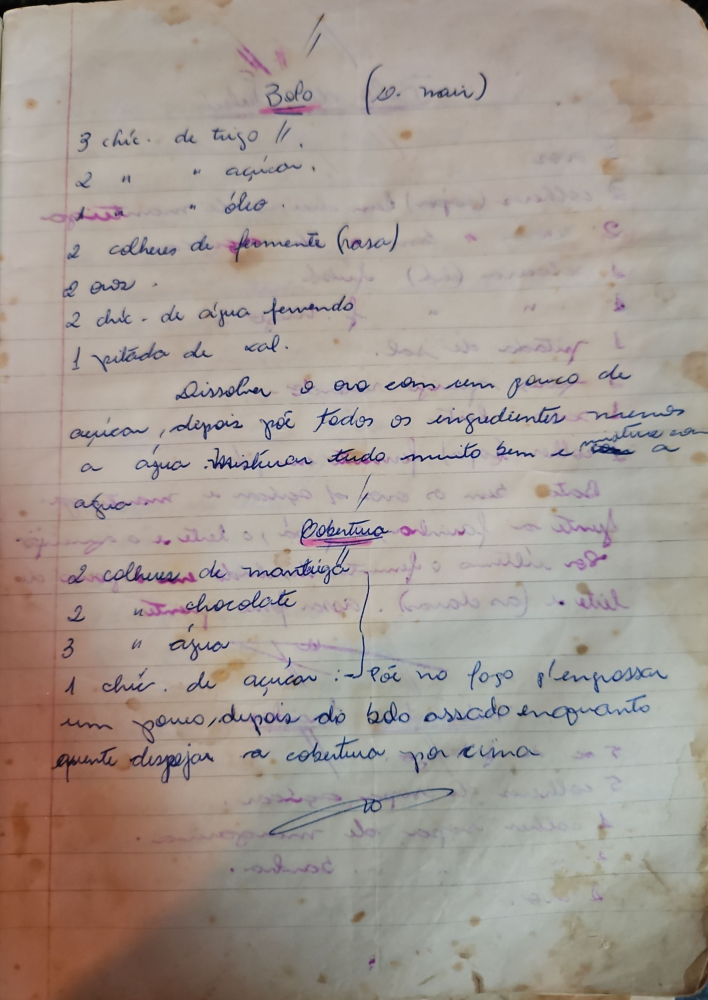 Bolo (D. nair)
3 chic. de trigo //.
2 " " açúcar.
1 " " óleo.
2 colheres de fermente (rasa)
2 ovos.
2 chic. de água fervendo
1 pitáda de sal.
Dissolver o ovo com um pouco de
açúcar, depois põe todos os ingredientes menos
a água. Misturar tudo muito bem e mistura com a
água
Cobertura
2 colheres de manteiga
2 " chocolate
3 " água
1 chic. de açúcar :- Põe no fogo p/engrossar
um pouco, depois do bolo assado enquanto
quente despejar a cobertura por cima